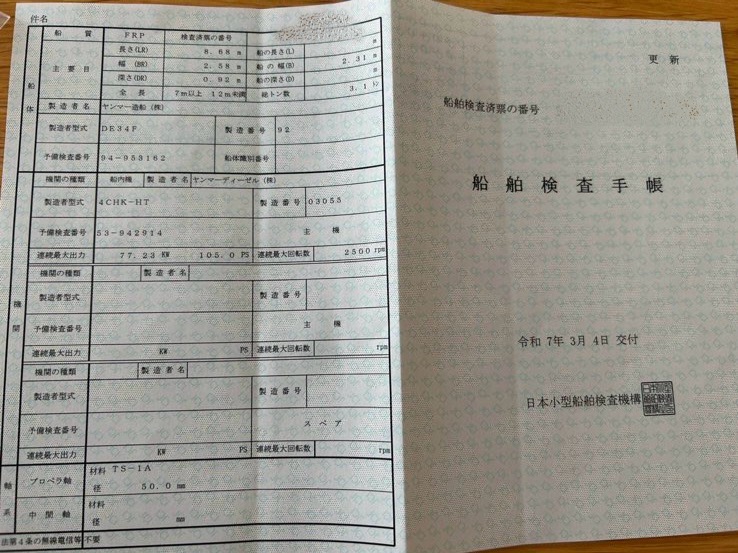 件名
船質 FRP 検査済票の番号
長さ(LR) 8.68 m 船の長さ(L) m
主要目 幅 (BR) 2.58 m 船の幅(B) 2.31 m
深さ(DR) 0.92 m 船の深さ(D) m
全長 7m以上 12m未満 総トン数 3.1 トン
船体
製造者名 ヤンマー造船(株)
製造者型式 DE34F 製造番号 92
予備検査番号 94-953162 船体識別番号
機関の種類 船内機 製造者名 ヤンマーディーゼル(株)
製造者型式 4CHK-HT 製造番号 03055
予備検査番号 53-942914 主機
連続最大出力 77.23 KW 105.0 PS 連続最大回転数 2500 rpm
機関の種類 製造者名
製造者型式 製造番号
機関
予備検査番号 主機
連続最大出力 KW PS 連続最大回転数 rpm
機関の種類 製造者名
製造者型式 製造番号
予備検査番号 スペア
連続最大出力 KW PS 連続最大回転数 rpm
軸系
プロペラ軸 材料 TS-1A
径 50.0 mm
中間軸 材料
径 mm
法第4条の無線電信等 不要
更新
船舶検査済票の番号
船舶検査手帳
令和 7年 3月 4日 交付
日本小型船舶検査機構